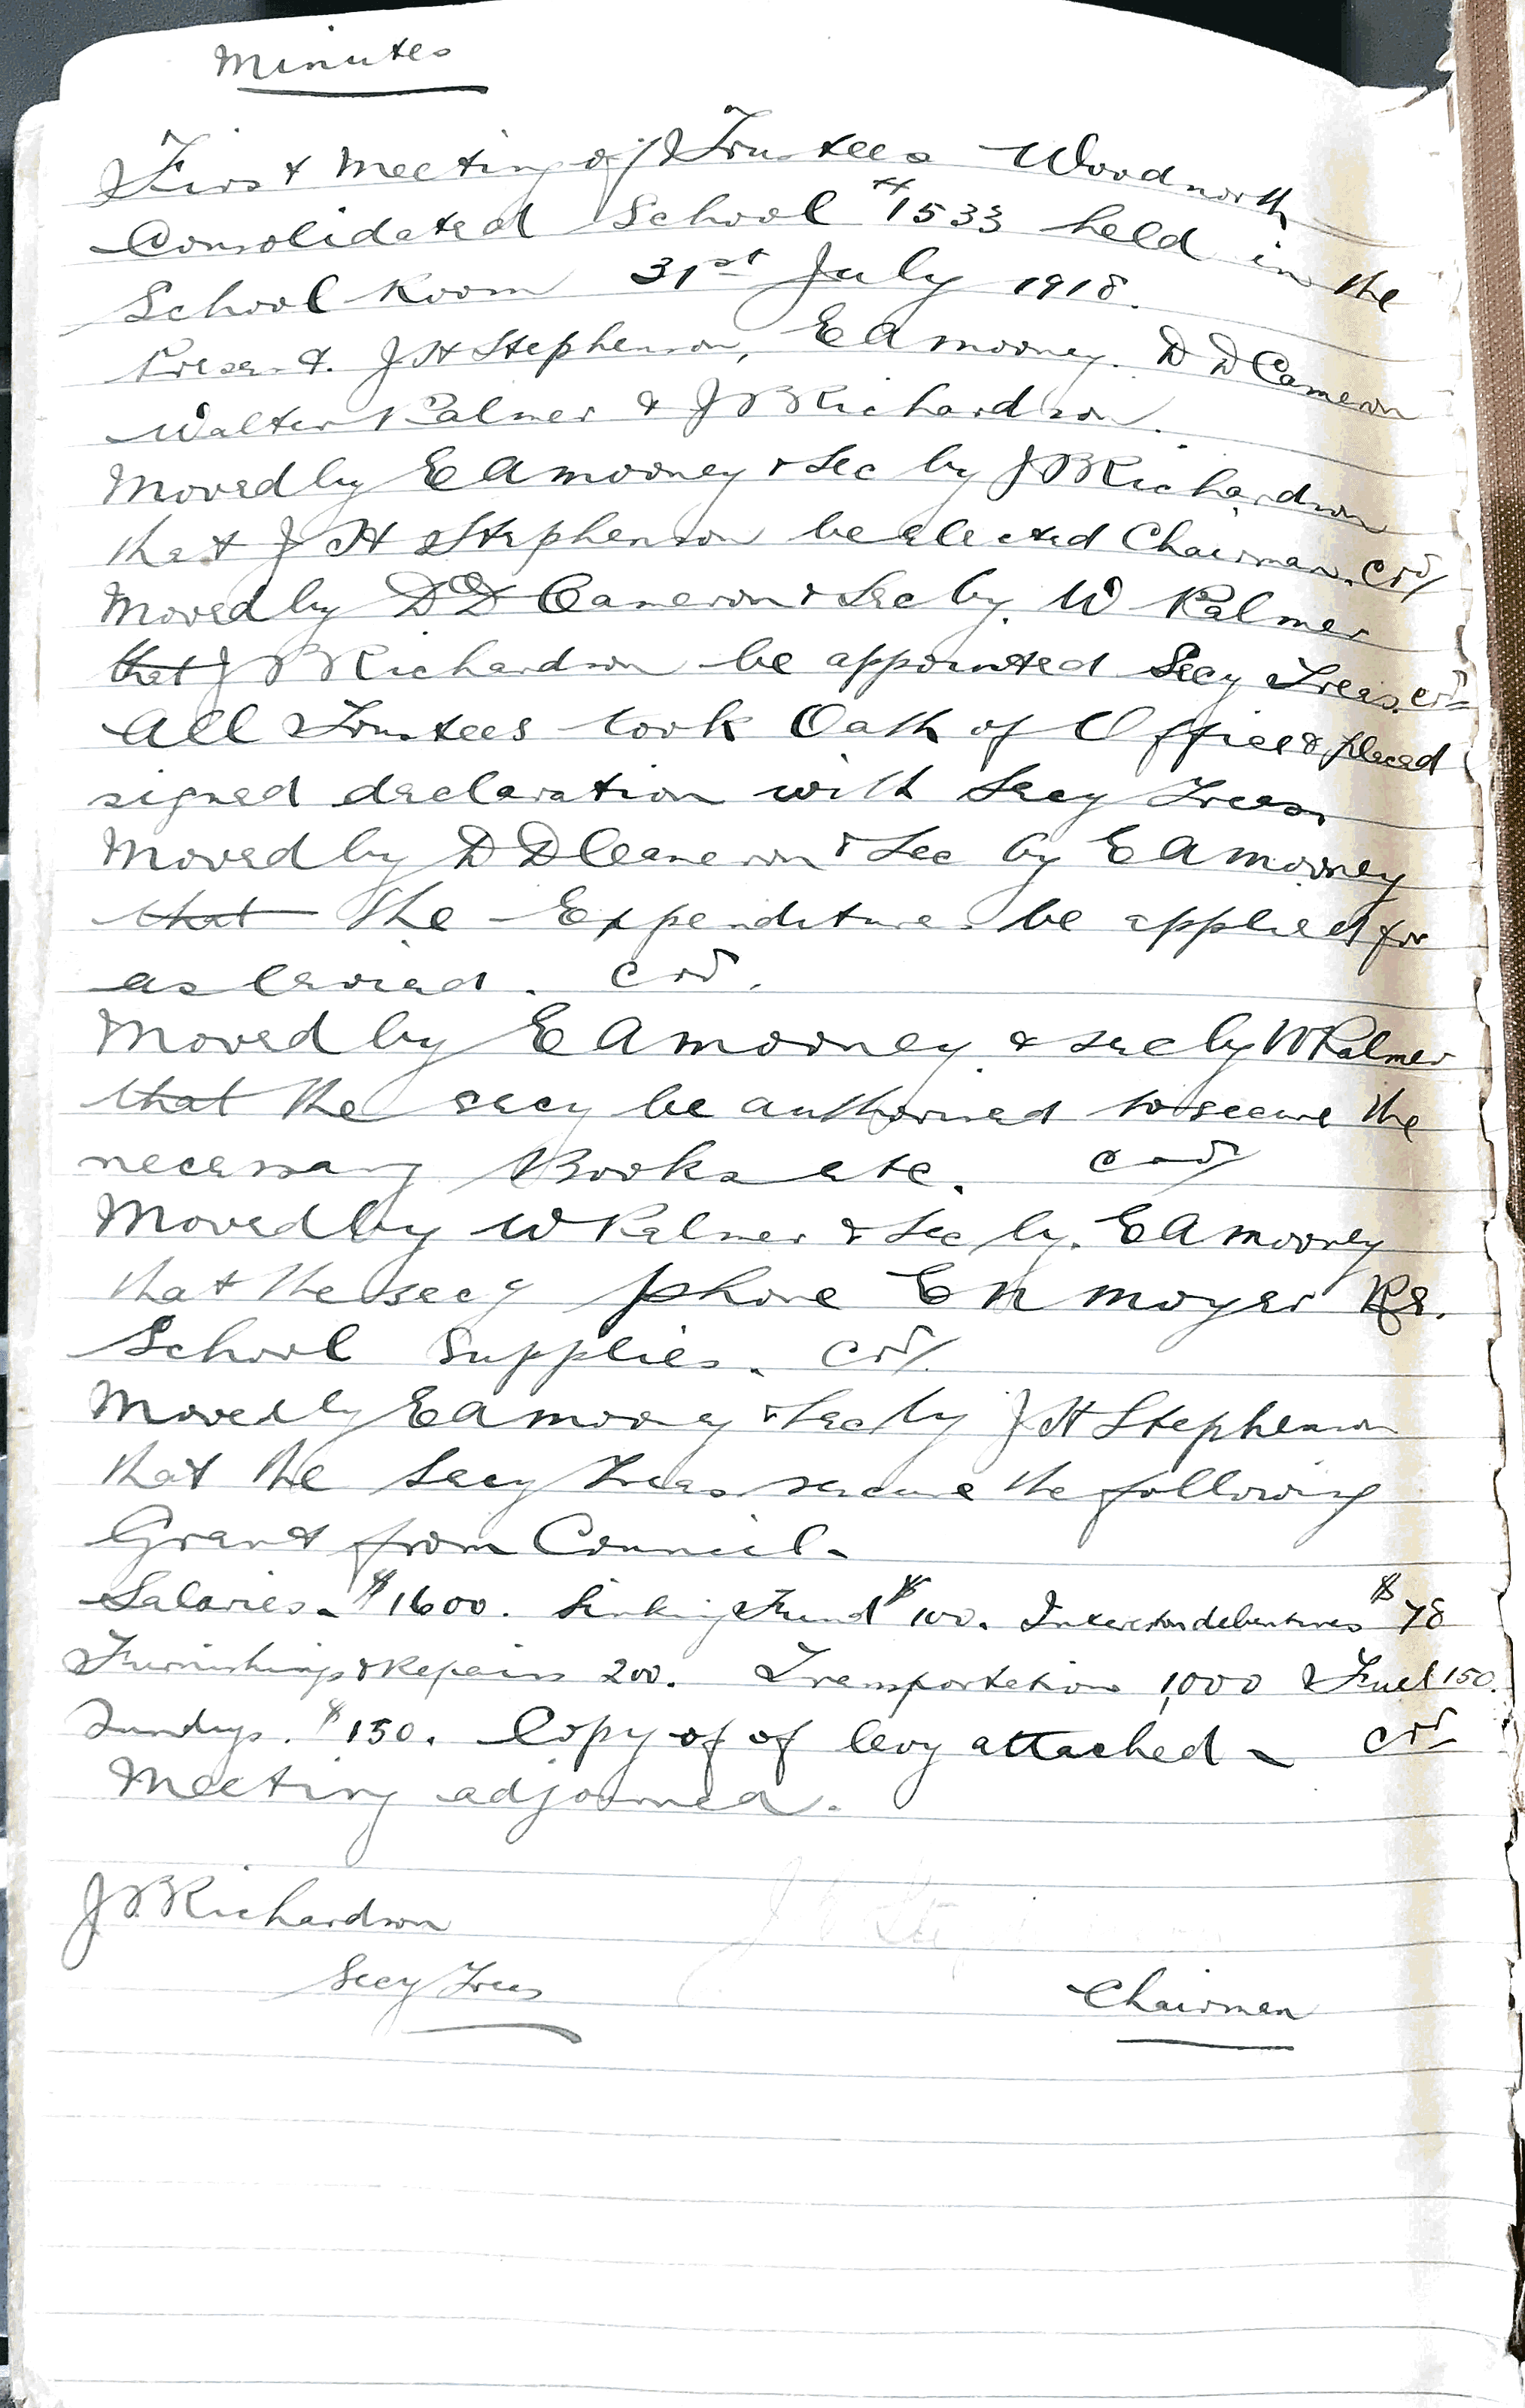 Minutes
First Meeting of Trustees Woodnorth
Consolidated School #1533 held in the
School Room 31st July 1918.
Present. J H Stephenson, E A Mooney. D D Cameron
Walter Palmer & J B Richardson.
Moved by E A Mooney & Sec by J B Richardson
that J H Stephenson be elected Chairman. crd/
Moved by D D Cameron & Sec by. W Palmer
that J B Richardson be appointed Secy Treas. crd
All Trustees took Oath of Office & placed
signed declaration with Secy Treas.
Moved by D D Cameron & Sec by E A Mooney
that the Expenditure be applied for
as levied. crd.
Moved by E A Mooney & sec by W Palmer
that the secy be authorised to secure the
necessary Books etc. crd/
Moved by W Palmer & Sec by. E A Mooney
that the secy phone E N Moyer Re.
School Supplies. crd/.
Moved by E A Mooney & Sec by J H Stephenson
that the Secy Treas secure the following
Grant from Council.
Salaries - $1600. Sinking Fund $100. Interest on debentures $78
Furnishings & Repairs 200. Transportation 1,000 Fuel 150.
Sundys. $150. Copy of of levy attached - crd
Meeting adjourned.
J B Richardson
Secy Treas
Chairman